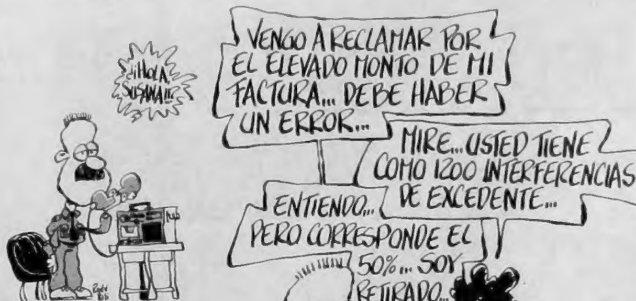 ¡¡HOLA,
SUSANA!!
VENGO A RECLAMAR POR
EL ELEVADO MONTO DE MI
FACTURA... DEBE HABER
UN ERROR...
MIRE... USTED TIENE
COMO 1200 INTERFERENCIAS
DE EXCEDENTE...
ENTIENDO...
PERO CORRESPONDE EL
50%... SOY
RETIRADO...